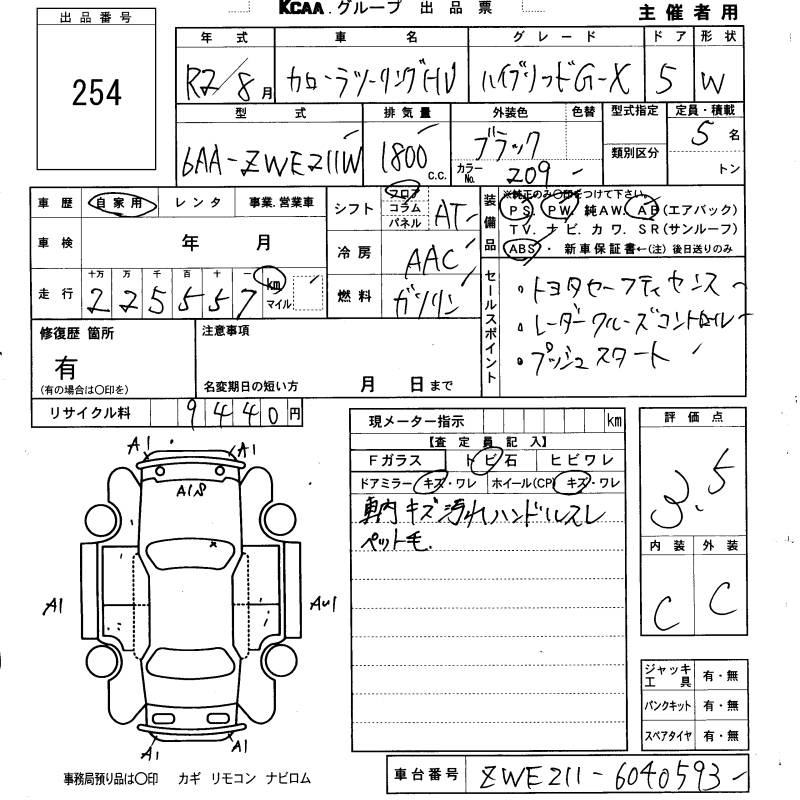 KCAA.グループ 出品票
主催者用
出品番号
254
年式 車名 グレード ドア 形状
R2/8月 カローラツーリングHV ハイブリッドG-X 5 W
型式 排気量 外装色 色替 型式指定 定員・積載
6AA-ZWE211W 1800c.c. ブラック 類別区分 5名
カラーNo. 209 トン
車歴 自家用 レンタ 事業.営業車
シフト フロア コラム パネル AT
装備品 ※純正のみ○印をつけて下さい。
PS. PW. 純AW. AB(エアバック)
TV. ナビ. カワ. SR(サンルーフ)
ABS・ 新車保証書←(注)後日送りのみ
車検 年 月
冷房 AAC
走行 十万 万 千 百 十 一 km マイル
225557
燃料 ガソリン
セールスポイント
・トヨタセーフティセンス
・レーダークルーズコントロール
・プッシュスタート
修復歴 箇所
有
(有の場合は○印を)
注意事項
名変期日の短い方 月 日まで
リサイクル料 9440円
現メーター指示 km
【査定員記入】
Fガラス トビ石 ヒビワレ
ドアミラー キズ・ワレ ホイール(CP) キズ・ワレ
車内キズ汚れハンドルスレ
ペット毛.
評価点
3.5
内装 外装
C C
A1 A1
A18
A1
AU1
A1 A1
ジャッキ工具 有・無
パンクキット 有・無
スペアタイヤ 有・無
事務局預り品は○印 カギ リモコン ナビロム
車台番号 ZWE211-6040593